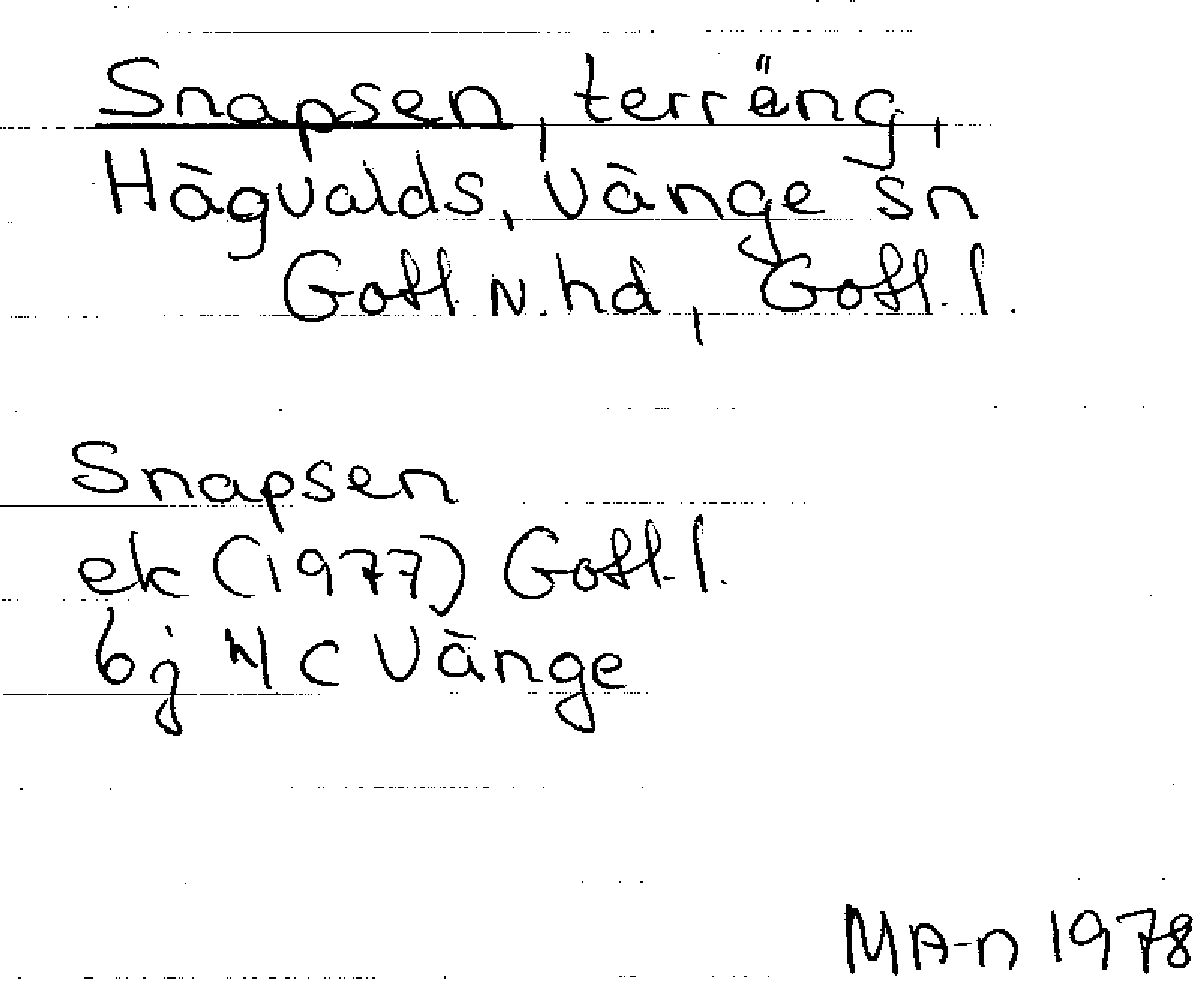 Snapsen, terräng,
Hägvalds, Vänge sn
Gotl. N. hd, Gotl. l.
Snapsen
ek (1977) Gotl. l.
6j NC Vänge
MA-n 1978